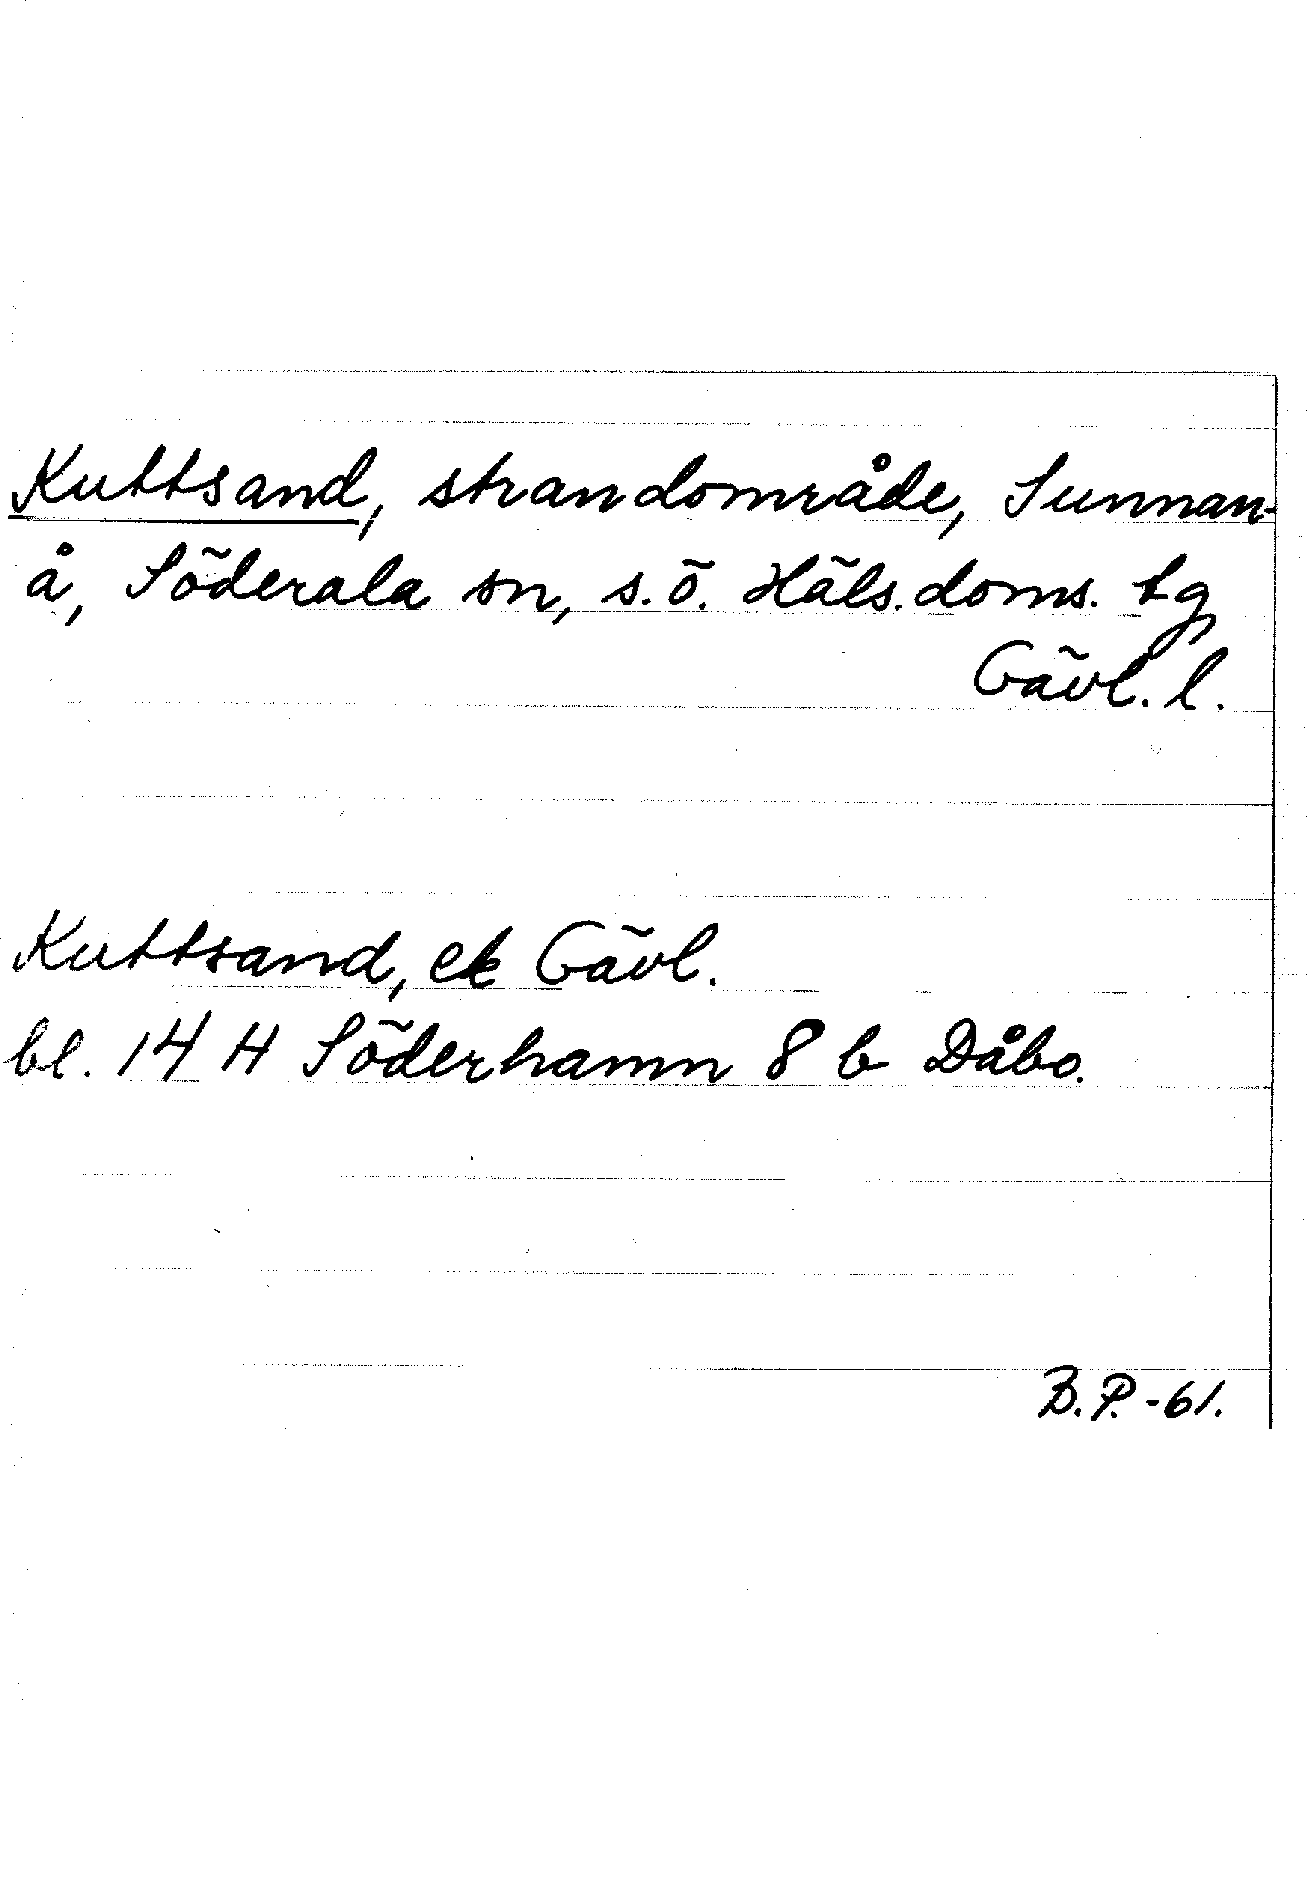 Kuttsand, strandområde, Sunnan-
å, Söderala sn, s.ö. Häls. doms. tg
Gävl. l.
Kuttsand, ek Gävl.
bl. 14 H Söderhamn 8 b Dåbo.
B.P. -61.